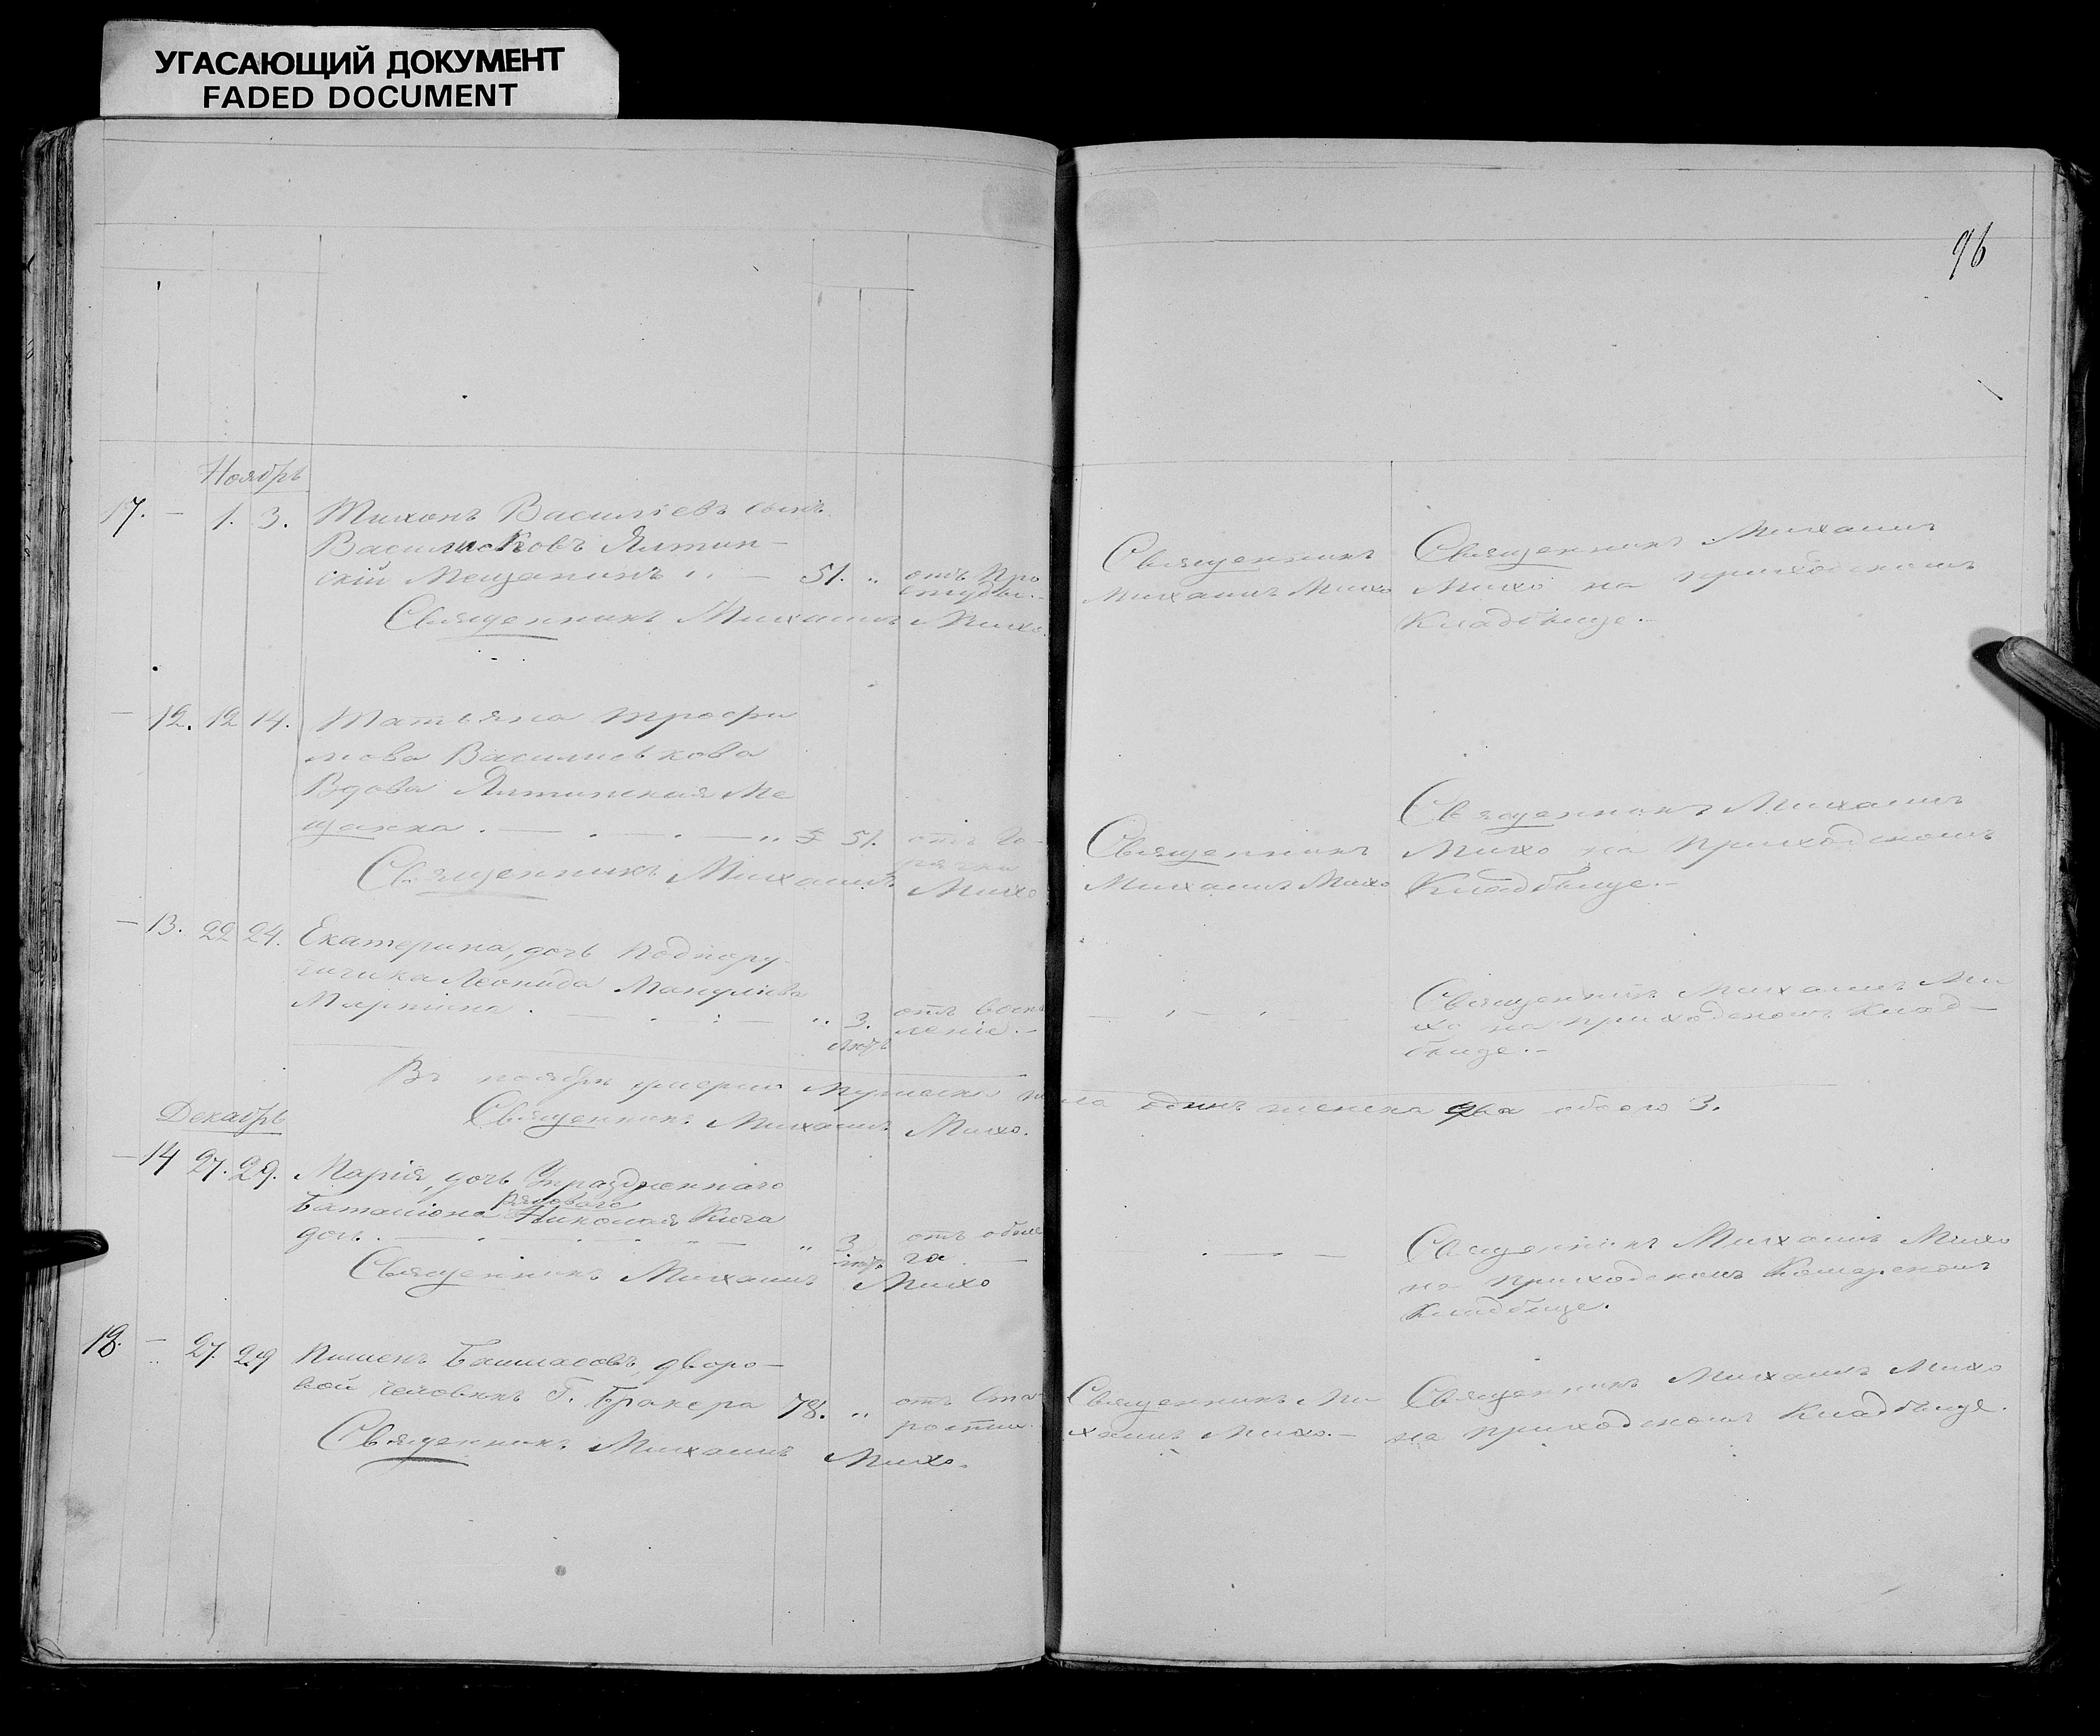 УГАСАЮЩИЙ ДОКУМЕНТ
FADED DOCUMENT
96
Ноябрь
17. — 1. 3. Тихонъ Васильевъ сынъ
Васильковъ Ялтин-
скій Мещанинъ — 51. " отъ Про
студы.-
Священникъ Михаилъ Михо.
Священникъ
Михаилъ Михо
Священникъ Михаилъ
Михо на приходскомъ
Кладбище.-
— 12. 12 14. Татьяна Трофи
мова Василькова
Вдова Ялтинская Ме
щанка. — " 51. отъ Го-
рячки
Священникъ Михаилъ Михо
Священникъ
Михаилъ Михо
Священникъ Михаилъ
Михо на Приходскомъ
Кладбище.-
— 13. 22 24. Екатерина, дочь Подпору-
чика Леонида Манулієва
. — " 3. отъ воспа
ленія.-
Священникъ Михаилъ Ми
хо на приходскомъ Клад-
бище.-
Въ ноябрѣ умерло мужеска пола одинъ женска два обоего 3.
Священникъ Михаилъ Михо.
Декабрь
— 14 27. 29. Марія, дочь Упраздненнаго
рядоваго
Баталіона Николая Кича
дочь. — " 3
Священникъ Михаилъ Михо
Священникъ Михаилъ Михо
на приходскомъ
Кладбище.
18. — 27. 29 Пименъ дворо-
вой человѣкъ Г. Бракера 78. " отъ Ста-
рости.
Священникъ Михаилъ Михо.
Священникъ Ми
хаилъ Михо.-
Священникъ Михаилъ Михо
на приходскомъ Кладбище.